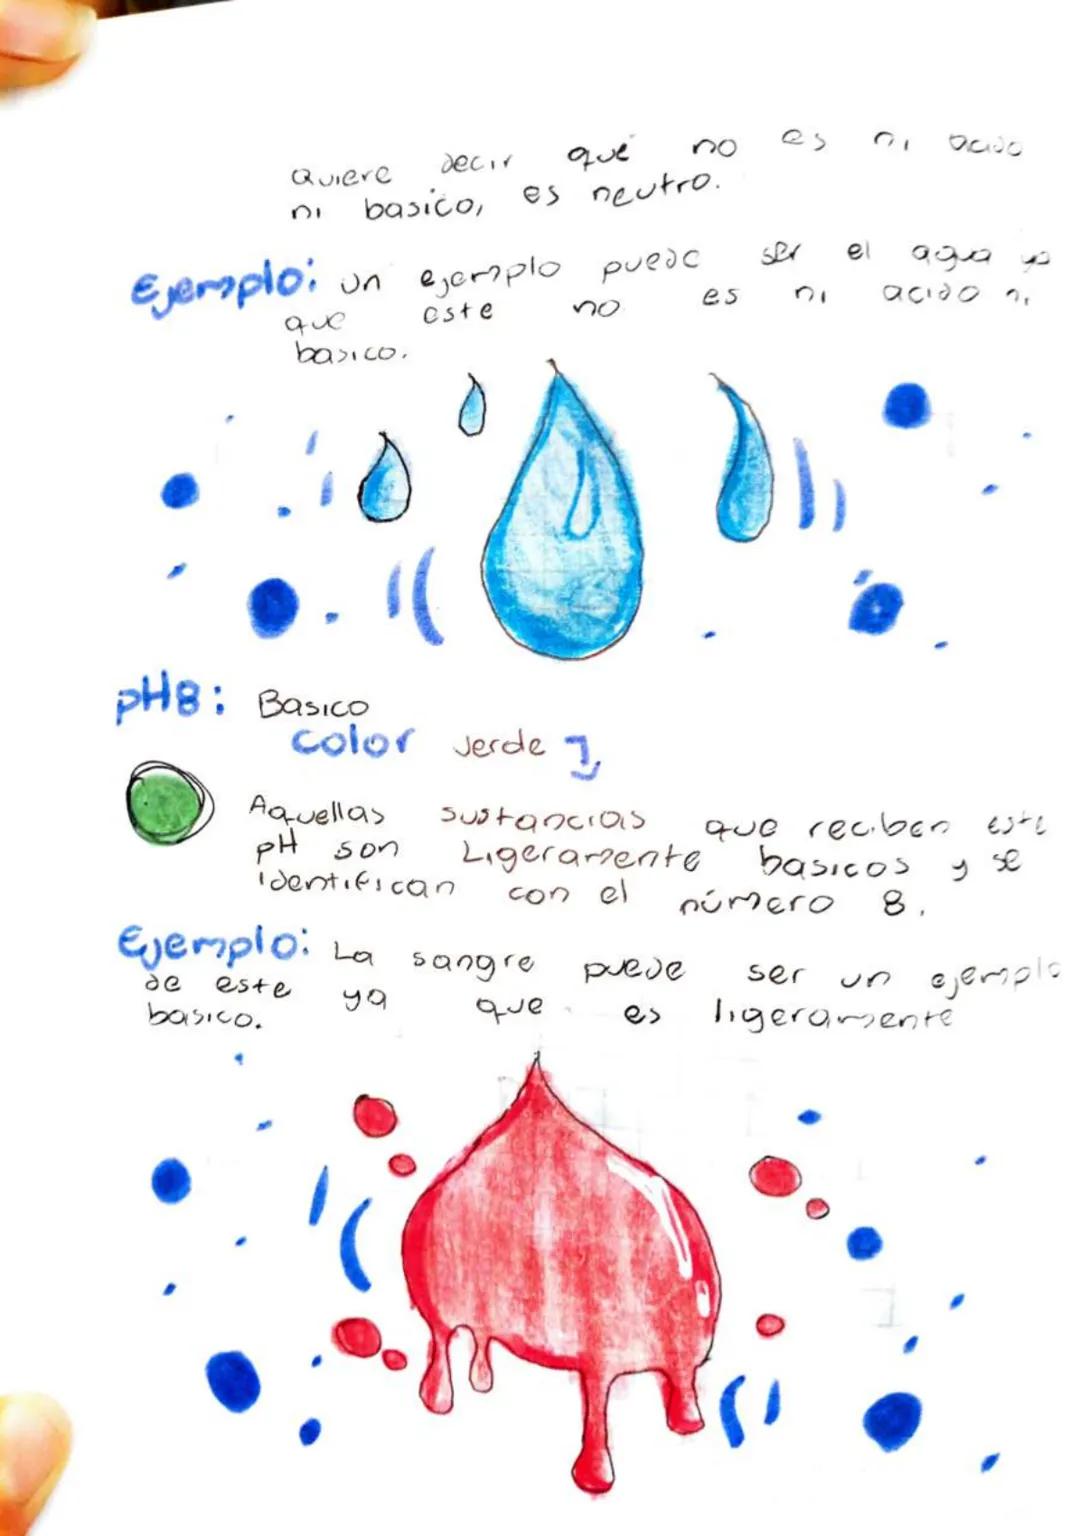 Quiere decir qué no es ni acido
ni basico, es neutro.
Ejemplo: un ejemplo puede ser el agua ya
que este no es ni acido ni
basico.
pH8: Basico
color verde
Aquellas sustancias que reciben este
pH son Ligeramente basicos y se
identifican con el número 8.
Ejemplo: La sangre puede ser un ejemplo
de este ya que es ligeramente
basico.